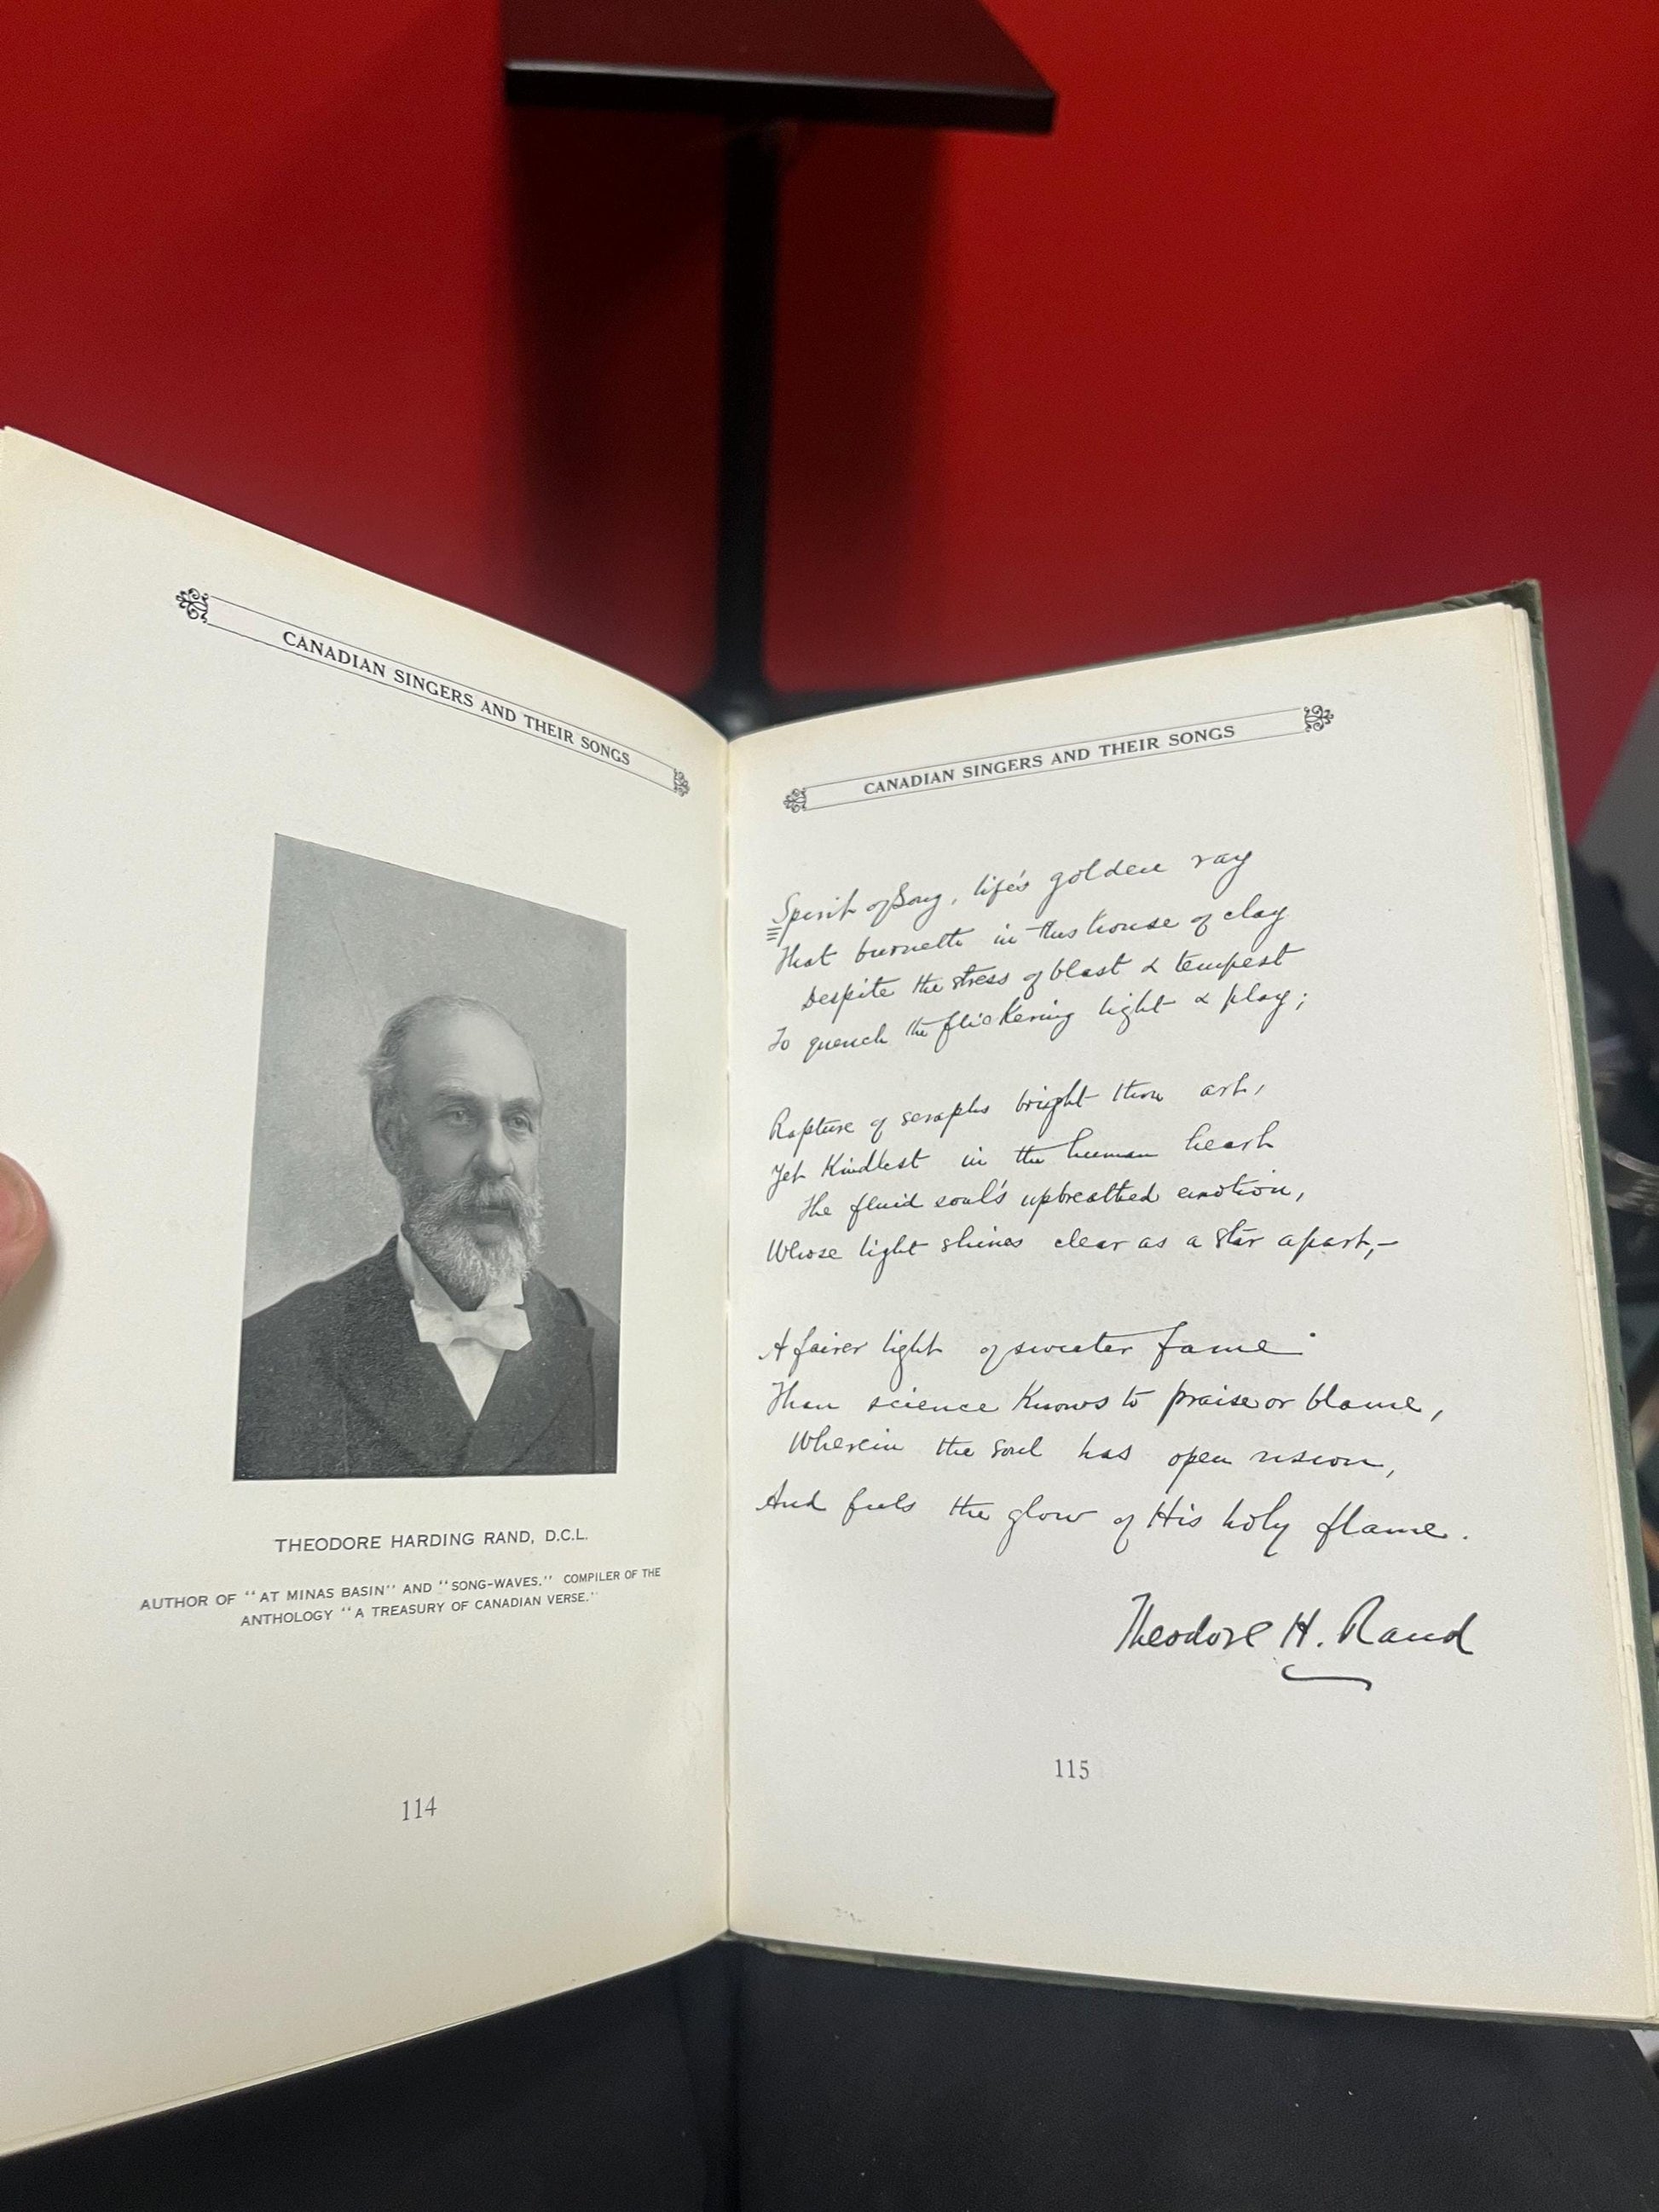 CANADIAN SINGERS AND THEIR SONGS
THEODORE HARDING RAND, D.C.L.
AUTHOR OF "AT MINAS BASIN" AND "SONG-WAVES." COMPILER OF THE
ANTHOLOGY "A TREASURY OF CANADIAN VERSE."
114
CANADIAN SINGERS AND THEIR SONGS
Spirit of Song, life's golden ray
That burneth in this house of clay
Despite the stress of blast & tempest
To quench the flickering light & play;
Rapture of seraphs bright thou art,
Yet kindlest in the human heart
The fluid soul's upbreathed emotion,
Whose light shines clear as a star apart,—
A fairer light of sweeter fame
Than science knows to praise or blame,
Wherein the soul has open vision,
And feels the glow of His holy flame.
Theodore H. Rand
115